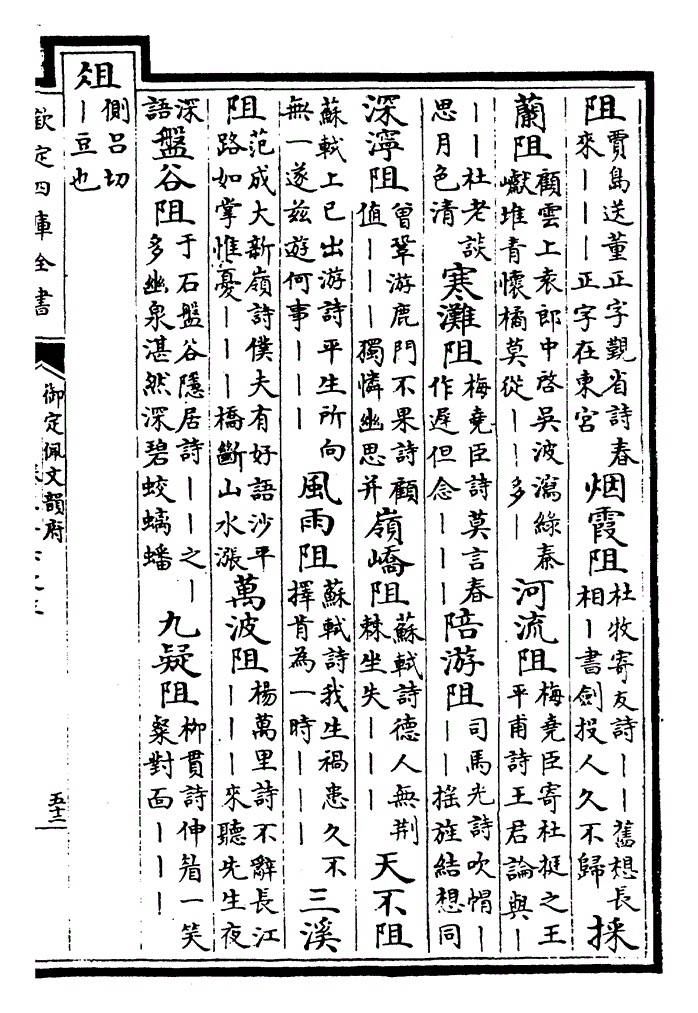 阻賈島送董正字覲省詩春來丨丨丨正字在東宮烟霞阻杜牧寄友詩丨丨舊想長相丨書劍投人久不歸採
蘭阻顧雲上袁郎中啓吳波瀉綠秦巘堆青懷橘莫從丨丨多丨河流阻梅堯臣寄杜挺之王平甫詩王君論與丨
丨丨杜老談思月色清寒灘阻梅堯臣詩莫言春作遲但念丨丨丨陪游阻司馬光詩吹帽丨丨丨搖旌結想同
深濘阻曾鞏游鹿門不果詩顧值丨丨丨獨憐幽思并嶺嶠阻蘇軾詩德人無荆棘坐失丨丨丨天不阻
蘇軾上巳出游詩平生所向無一遂兹遊何事丨丨丨風雨阻蘇軾詩我生禍患久不擇肯為一時丨丨丨三溪
阻范成大新嶺詩僕夫有好語沙平路如掌惟憂丨丨丨橋斷山水漲萬波阻楊萬里詩不辭長江丨丨丨來聽先生夜
深語盤谷阻于石盤谷隱居詩丨丨之丨多幽泉湛然深碧蛟螭蟠九疑阻柳貫詩伸眉一笑粲對面丨丨丨
俎側呂切丨豆也
欽定四庫全書
御定佩文韻府
五十二